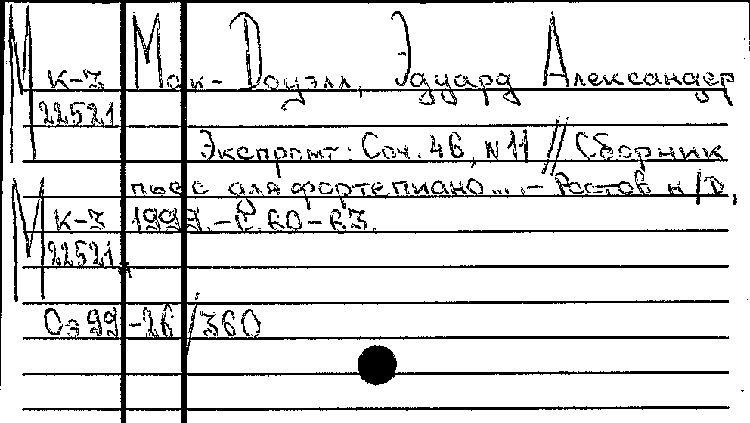 М К-3 Мак-Доуэлл, Эдуард Александер
22521
Экспромт: Соч. 46, N 11 // Сборник
пьес для фортепиано... - Ростов н/Д,
М К-3 1999. - С. 60-63.
22521
Оз 99-26/360